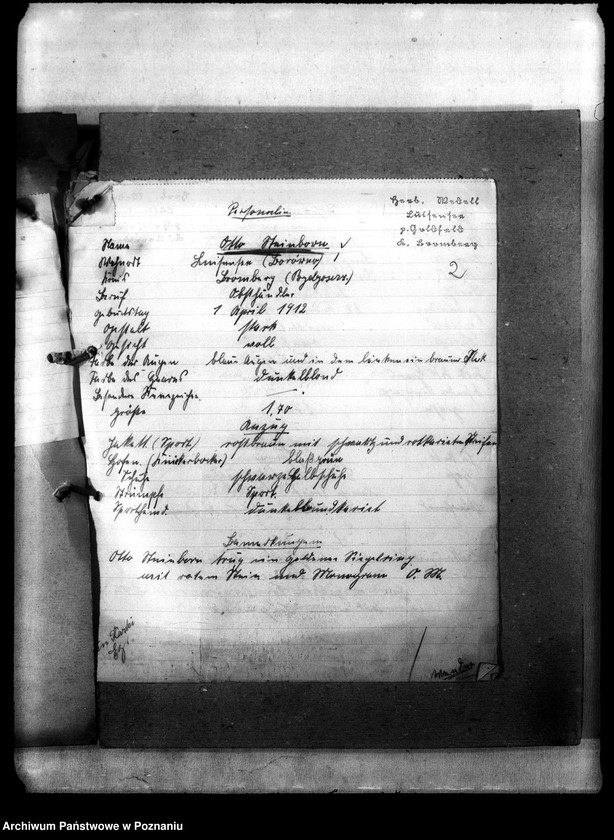 Herb. Wedell
Luisensee
p. Goldfeld
K. Bromberg
2
Personalien
Name Otto Steinborn
Wohnort Luisensee
Kreis Bromberg
Beruf Obsthändler
Geburtstag 1 April 1912
Gestalt stark
Gesicht voll
Farbe der Augen blaue Augen und in dem linken ein brauner Fleck
Farbe des Haares dunkelblond
Besondere Kennzeichen —
größe 1,70
Anzug
Jakett (Sport) rostbraun mit schwarz und rotkarierten Streifen
Hosen (Knickerbocker) blaßgrün
Schuhe schwarze Halbschuhe
Strümpfe Sport.
Sporthemd. dunkelblau kariert
Bemerkungen
Otto Steinborn trug ein goldenen Siegelring
mit rotem Stein und Monogram O. St.
Archiwum Państwowe w Poznaniu